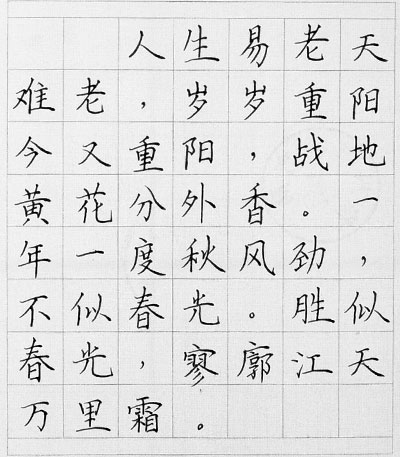 人生易老天
难老，岁岁重阳
今又重阳，战地
黄花分外香。一
年一度秋风劲，
不似春光。胜似
春光，寥廓江天
万里霜。